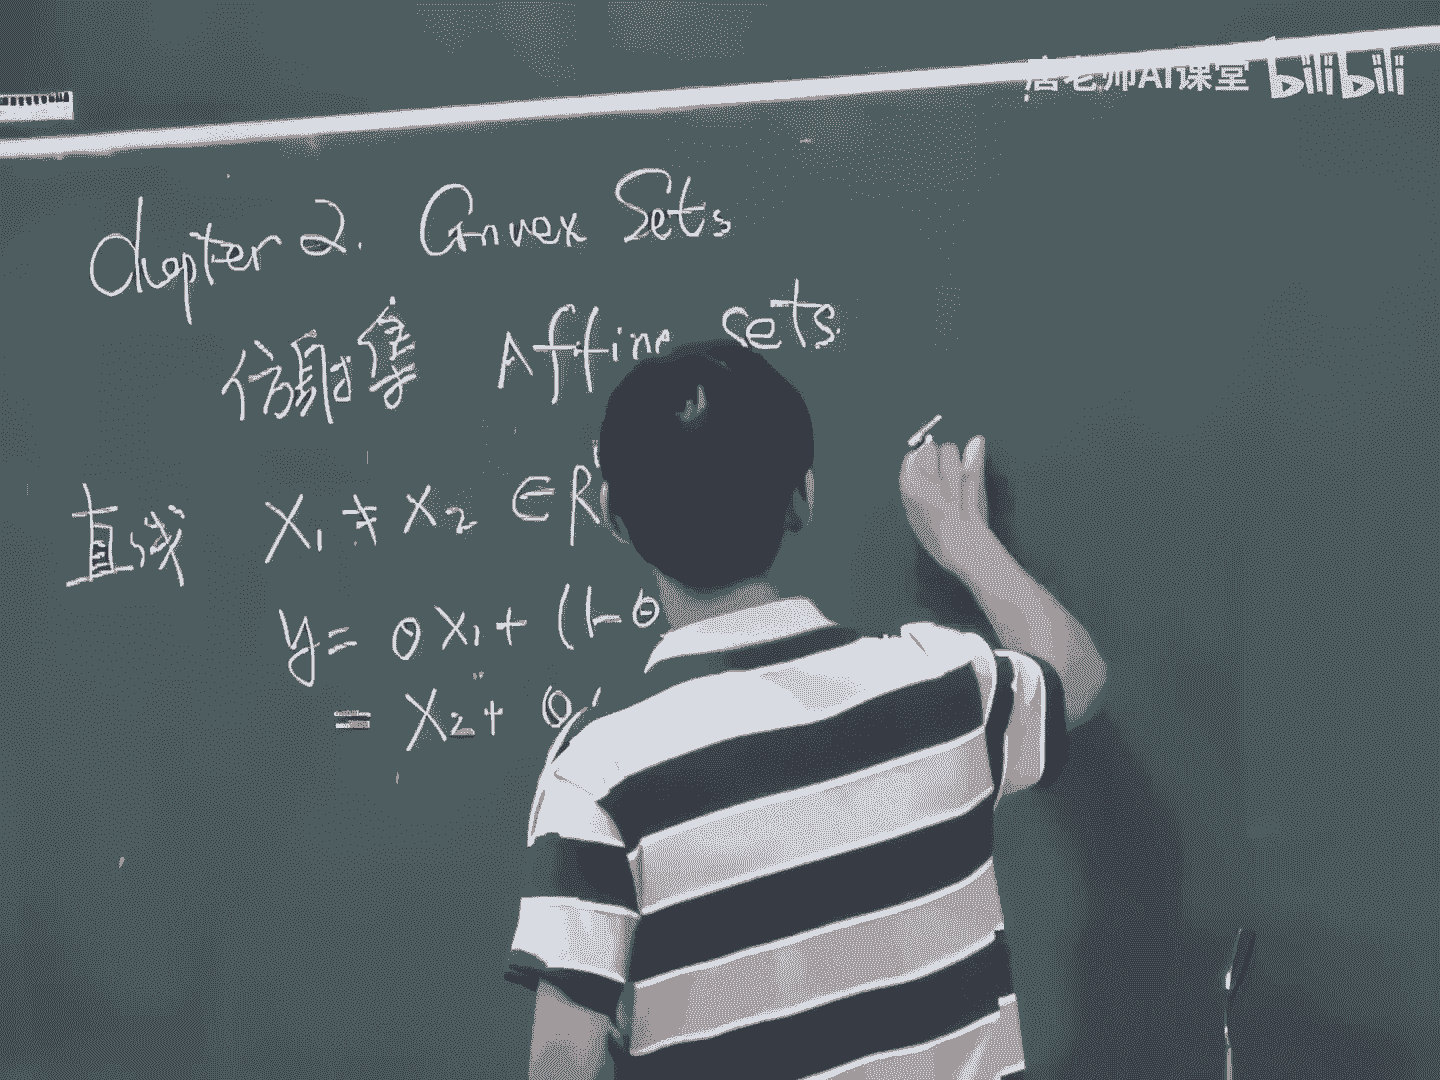 唐老师AI课堂 bilibili
Chapter 2. Convex Sets
仿射集 Affine Sets
直线 X₁ ≠ X₂ ∈ R
y = θ X₁ + (1-θ
= X₂ + θ